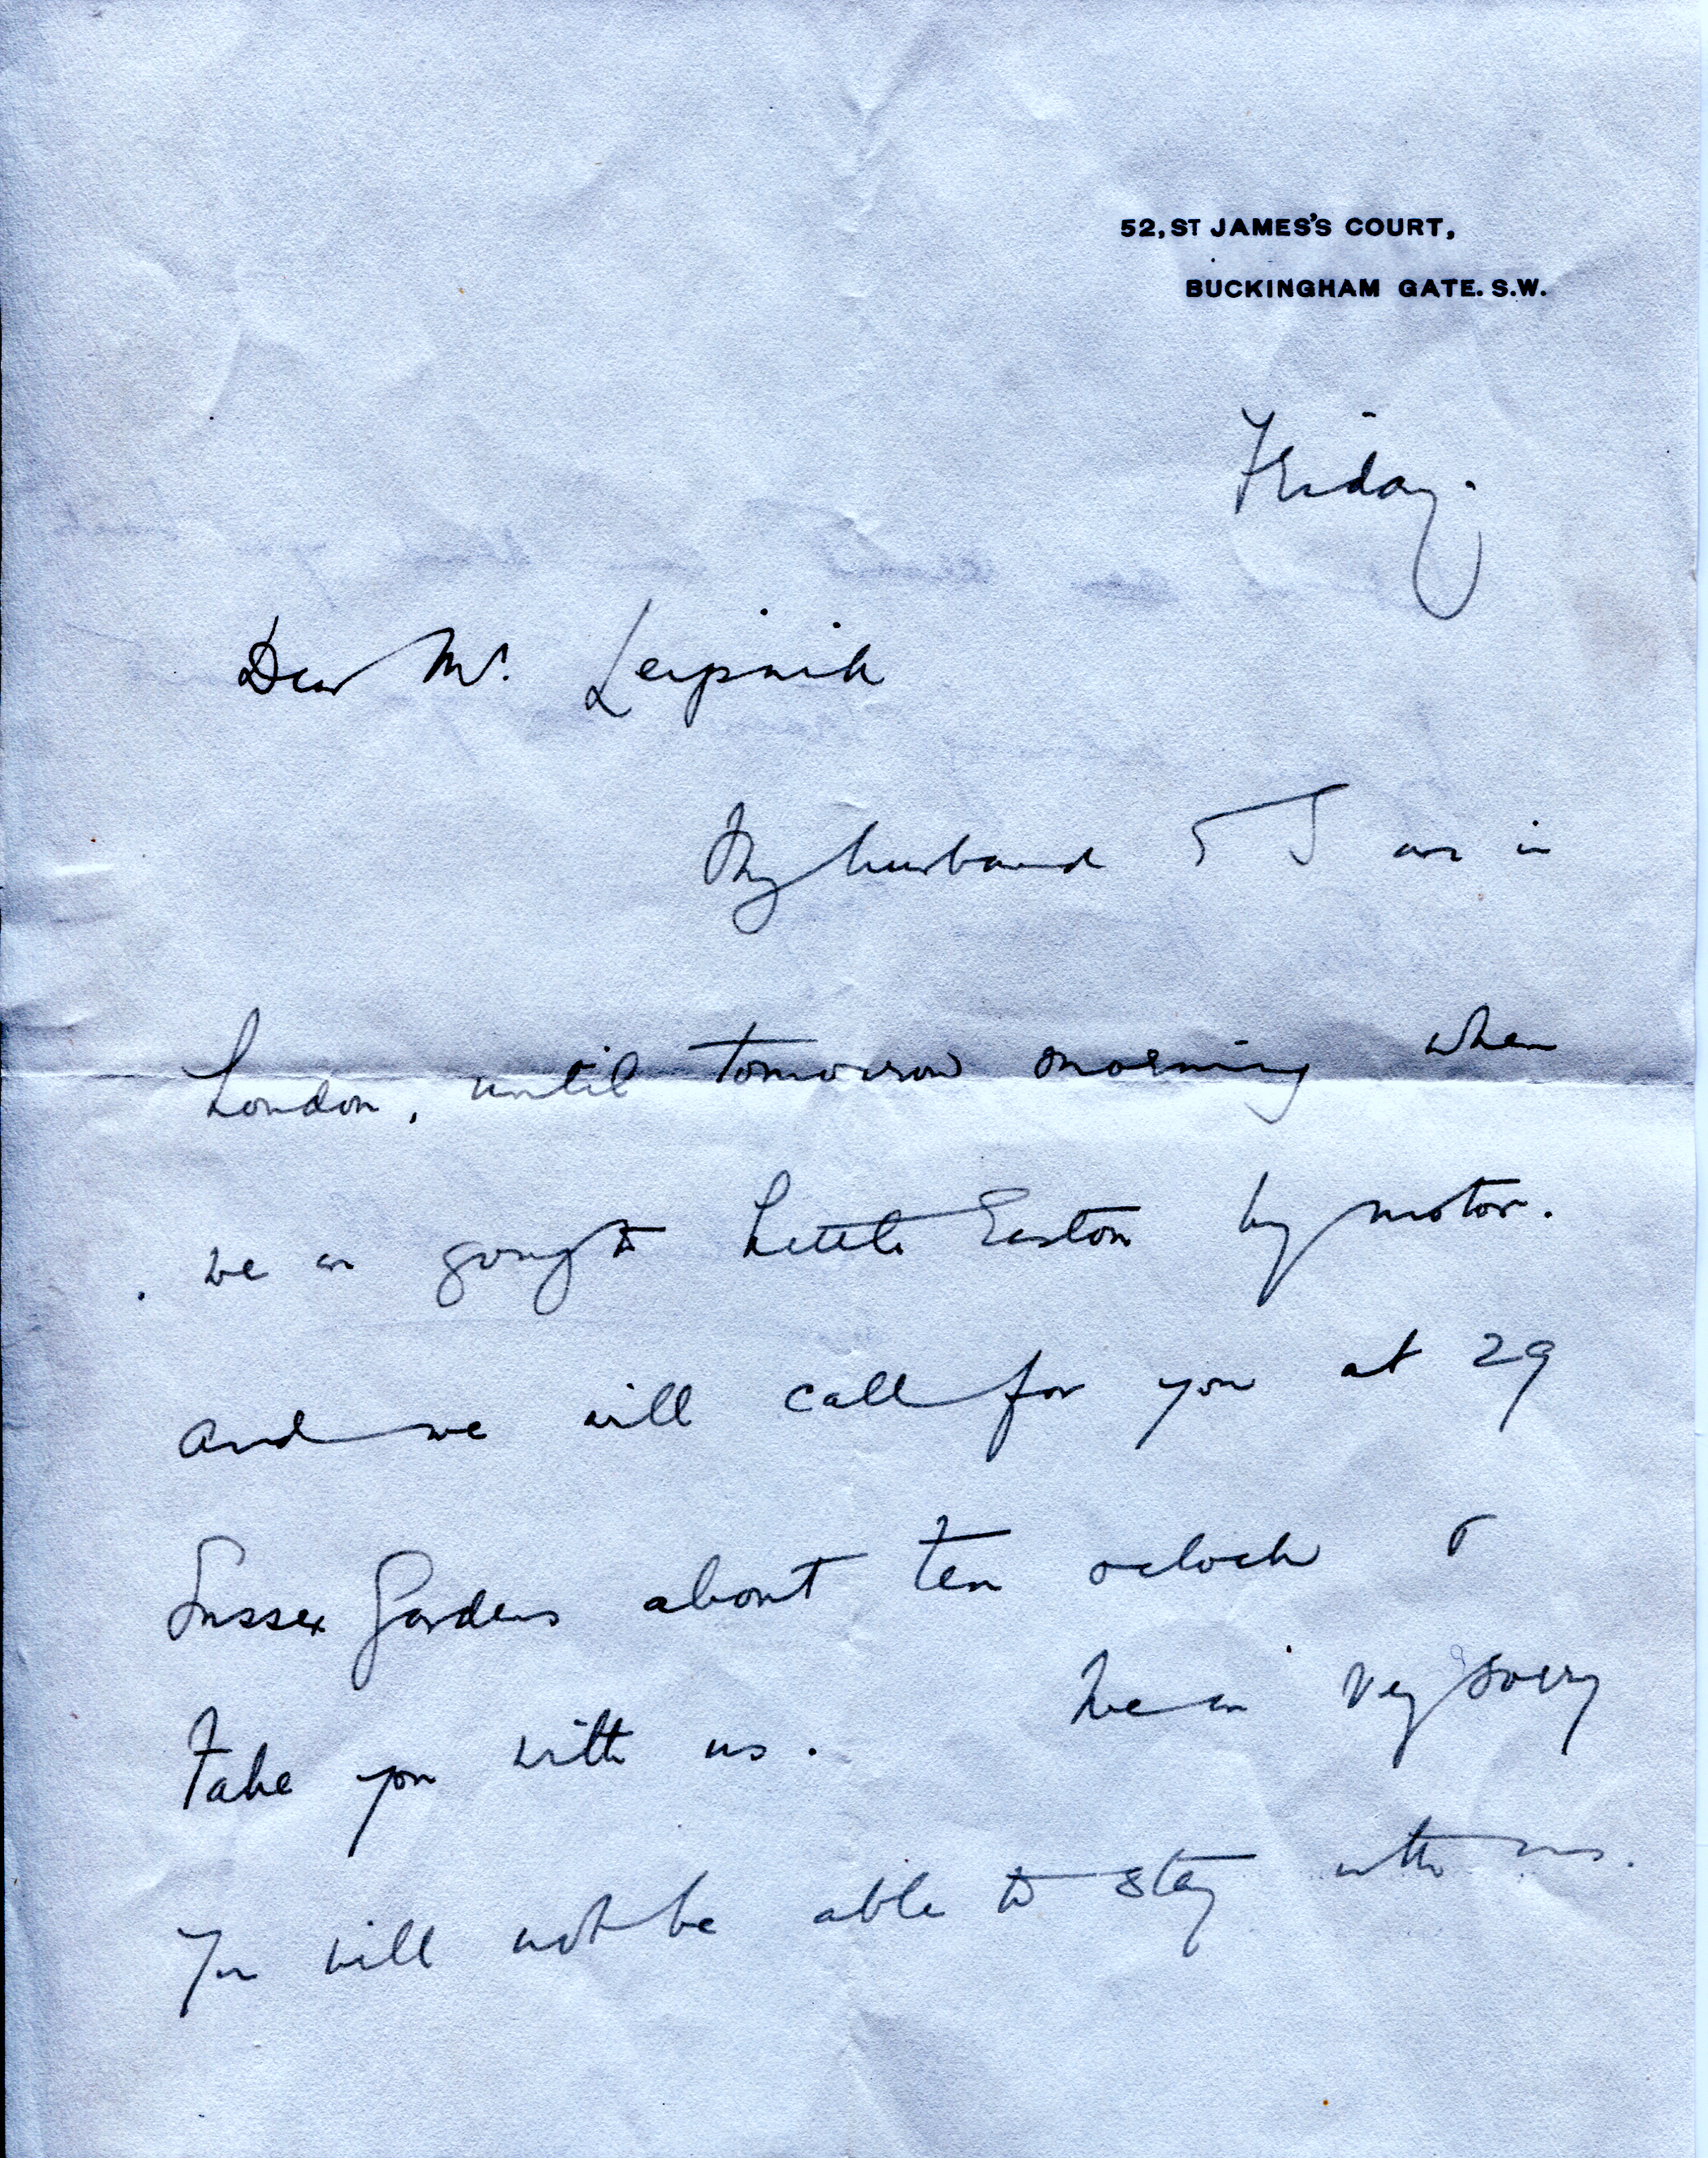 52, ST JAMES'S COURT,
BUCKINGHAM GATE. S.W.
Friday.
Dear Mr. Leipnik
My husband & I are in
London, until tomorrow morning when
we are going to Little Easton by motor.
and we will call for you at 29
Sussex Gardens about ten oclock &
take you with us. We are very sorry
you will not be able to stay with us.